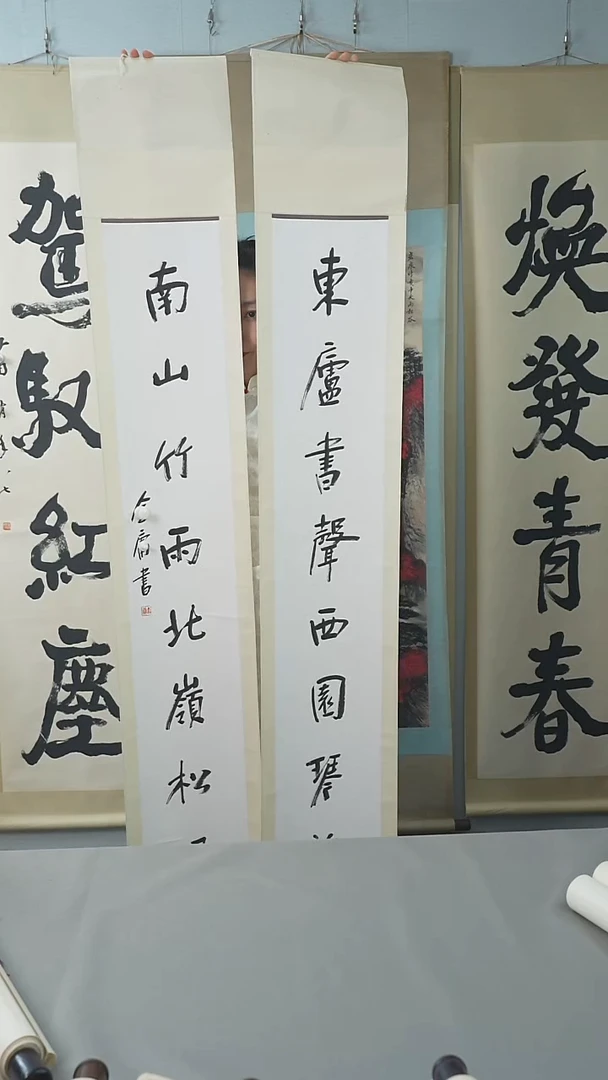 煥發青春
東廬書聲西園琴
南山竹雨北嶺松
書
駕馭紅塵